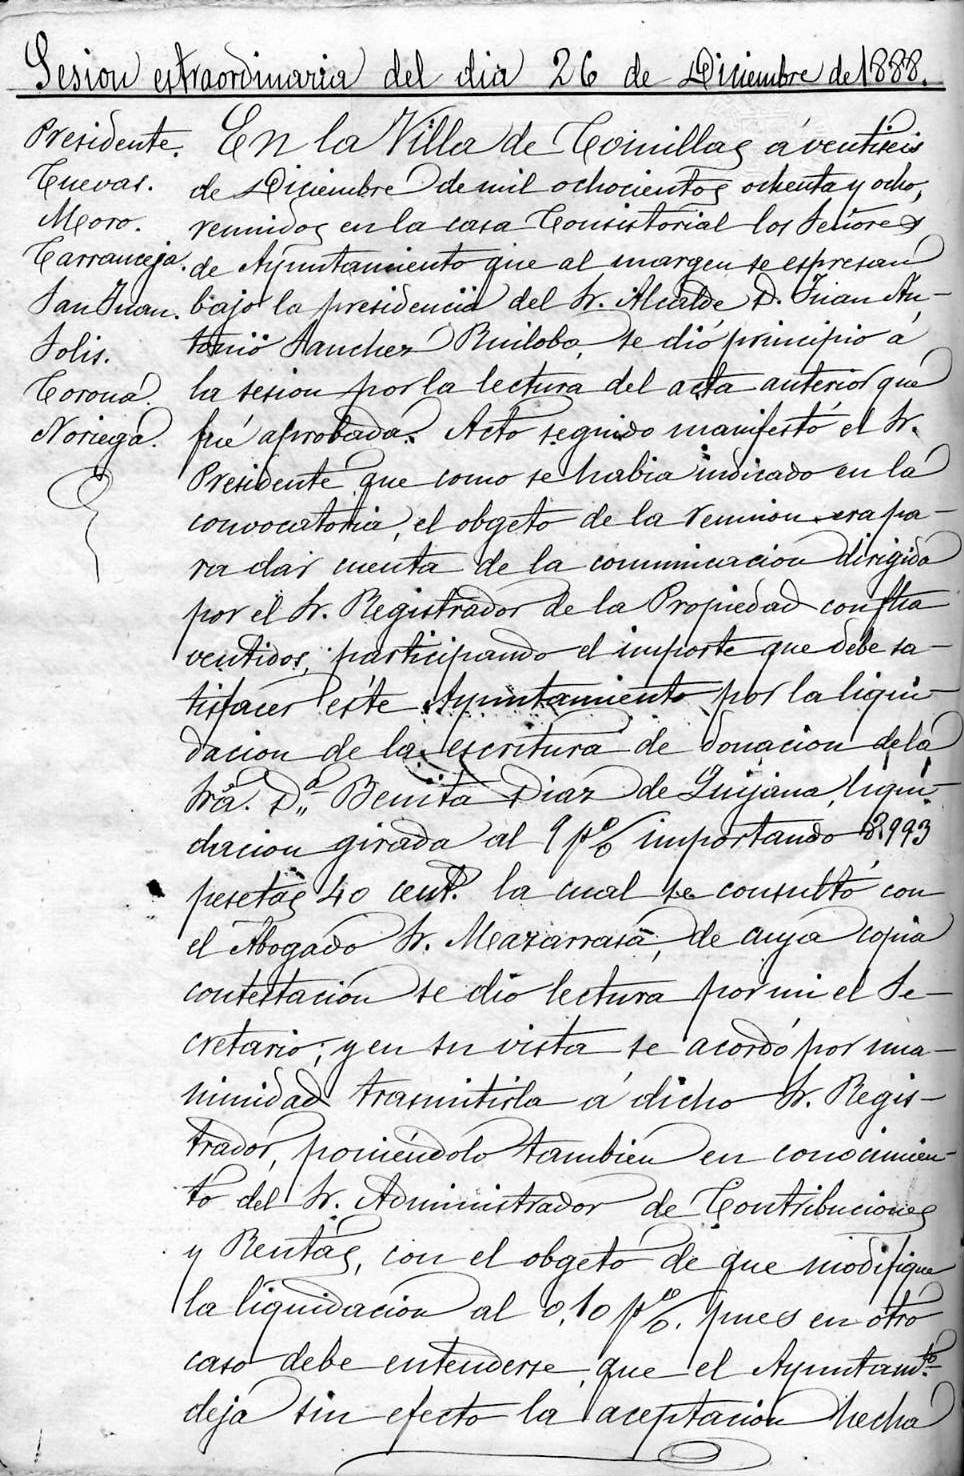 Sesion estraordinaria del dia 26 de Diciembre de 1888.
Presidente.
Cuevas.
Moro.
Carranceja.
San Juan.
Solis.
Corona.
Noriega.
En la Villa de Comillas á ventiseis
de Diciembre de mil ochocientos ochenta y ocho,
reunidos en la casa Consistorial los Señores
de Ayuntamiento que al margen se espresan
bajo la presidencia del Sr. Alcalde D. Juan An-
tonio Sanchez Ruiloba, se dió principio á
la sesion por la lectura del acta anterior que
fué aprobada. Acto seguido manifestó el Sr.
Presidente que como se habia indicado en la
convocatoria, el obgeto de la reunion era pa-
ra dar cuenta de la comunicacion dirigida
por el Sr. Registrador de la Propiedad con fha
ventidos, participando el importe que debe sa-
tisfacer éste Ayuntamiento por la liqui-
dacion de la escritura de donacion de la
Sra. Dª Benita Diaz de Quijana, liqui-
dacion girada al 9 p% importando 2.993
pesetas 40 cent.s la cual se consultó con
el Abogado Sr. Mazarrasa, de cuya copia
contestacion se dio lectura por mi el Se-
cretario; y en su vista se acordó por una-
nimidad trasmitirla á dicho Sr. Regis-
trador, poniéndolo tambien en conocimien-
to del Sr. Administrador de Contribuciones
y Rentas, con el obgeto de que modifique
la liquidacion al 0,10 p%. pues en otro
caso debe entenderse, que el Ayuntam.to
deja sin efecto la aceptacion hecha